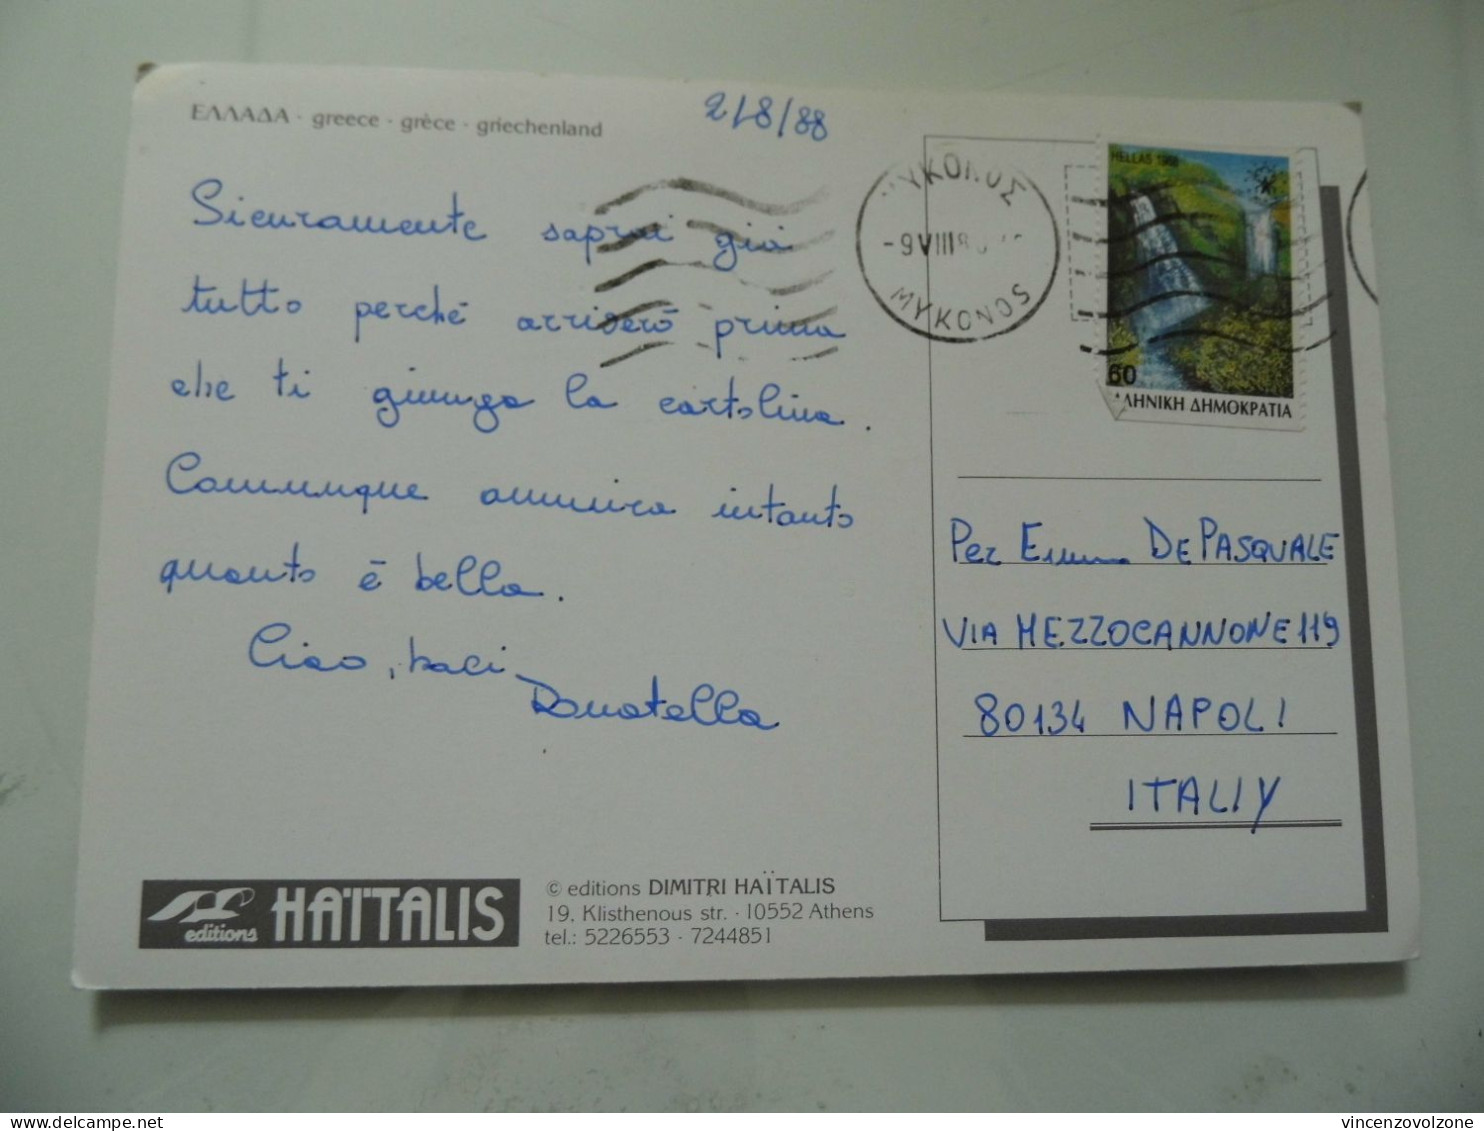 ΕΛΛΑΔΑ · greece · grèce · griechenland
2/8/88
Sicuramente saprai già
tutto perché arriverò prima
che ti giunga la cartolina.
Comunque ammira intanto
quanto è bella.
Ciao, baci
Donatella
ΜΥΚΟΝΟΣ
-9 VIII 8
MYKONOS
HELLAS 1988
60
ΛΗΝΙΚΗ ΔΗΜΟΚΡΑΤΙΑ
Per Emma DE PASQUALE
VIA MEZZOCANNONE 119
80134 NAPOLI
ITALIY
editions HAÏTALIS
© editions DIMITRI HAÏTALIS
19, Klisthenous str. · 10552 Athens
tel.: 5226553 · 7244851
vincenzovolzone